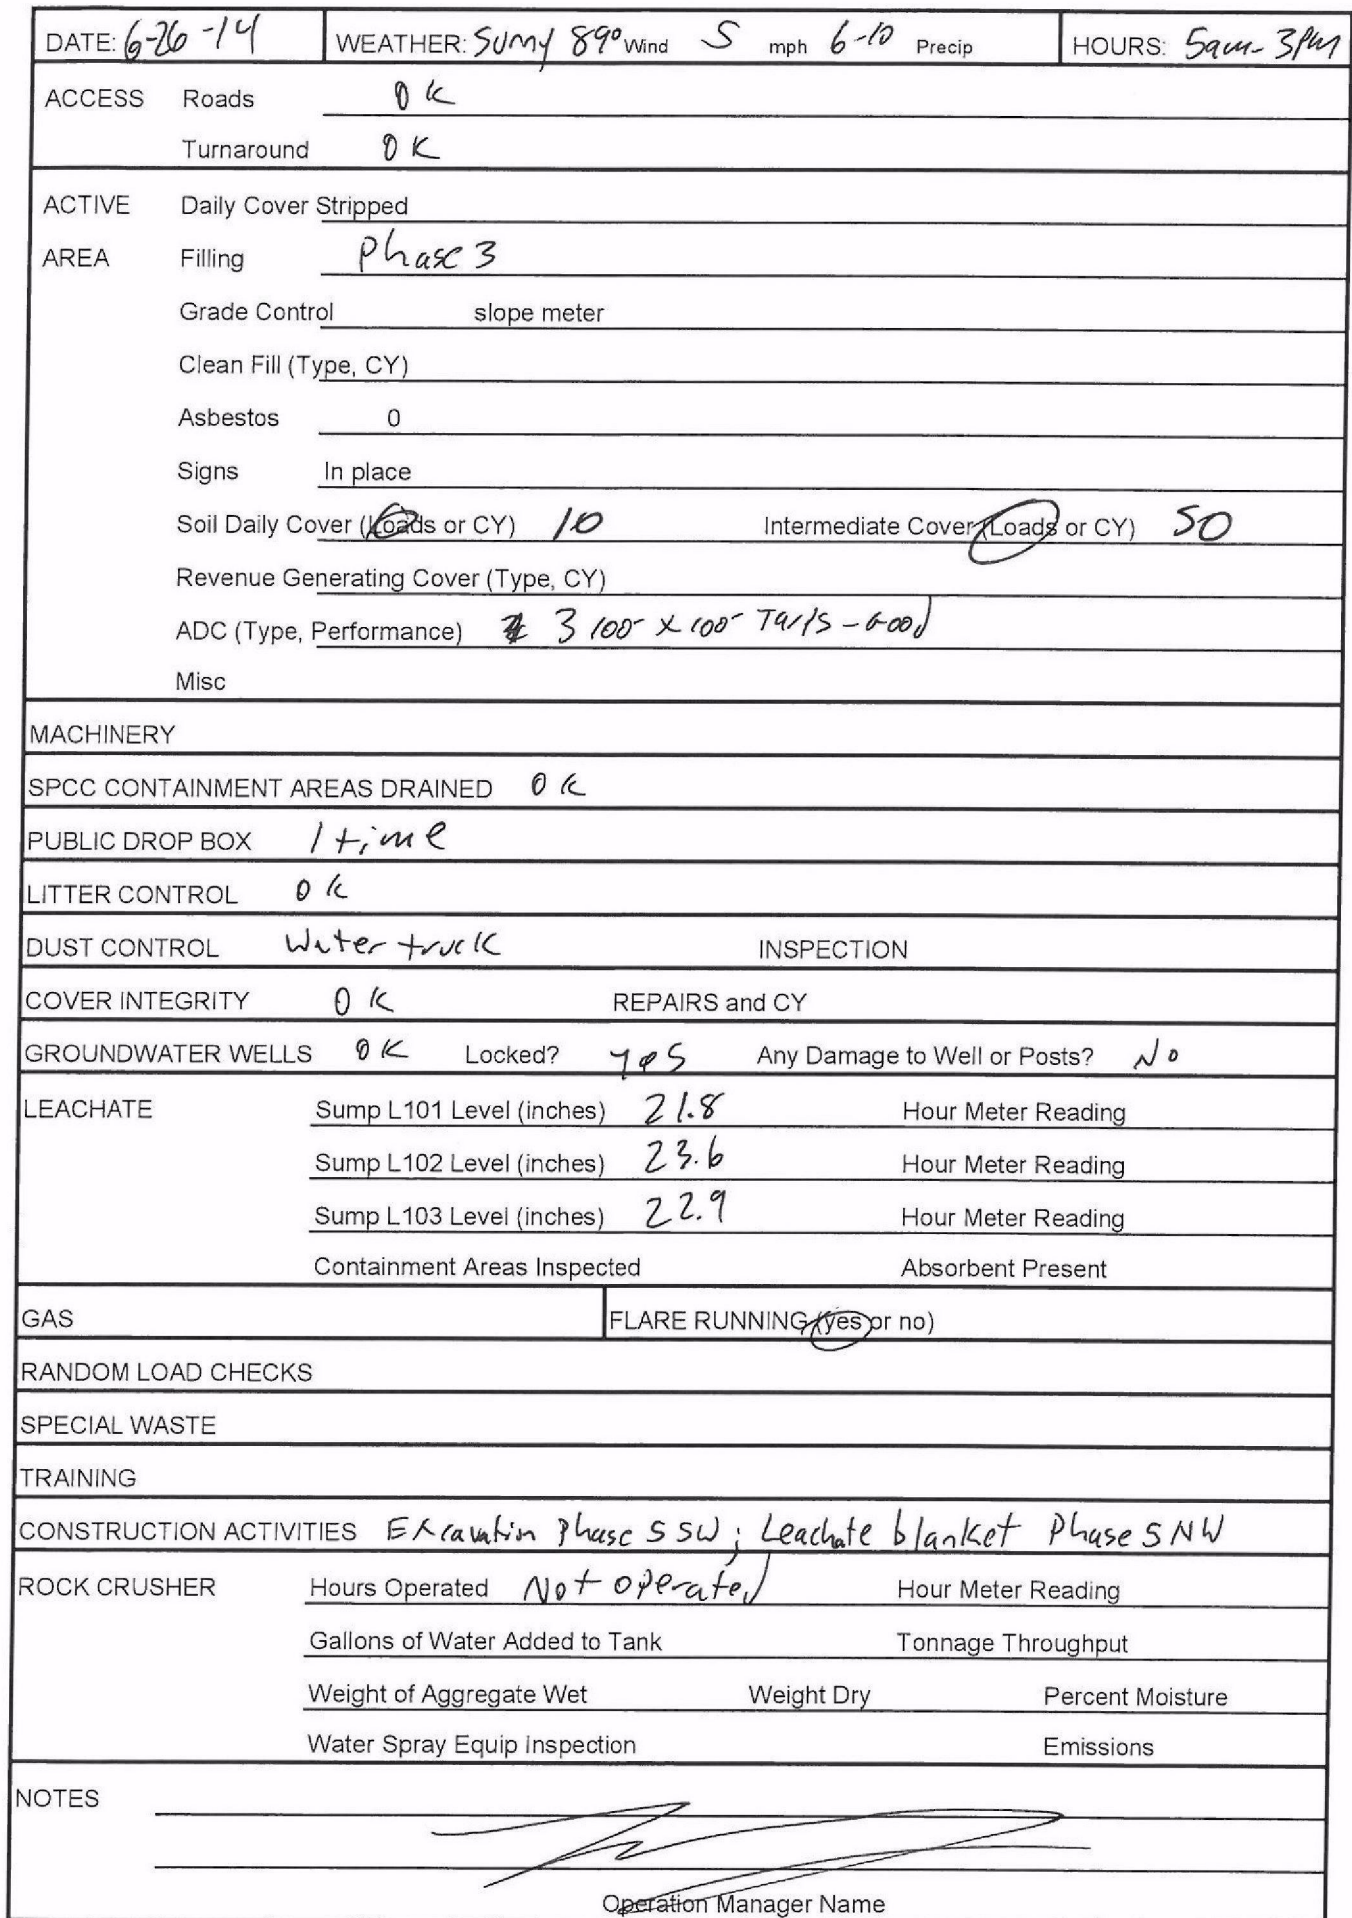 DATE: 6-26-14 WEATHER: Sunny 89° Wind S mph 6-10 Precip HOURS: 5am-3PM
ACCESS Roads OK
Turnaround OK
ACTIVE Daily Cover Stripped
AREA Filling Phase 3
Grade Control slope meter
Clean Fill (Type, CY)
Asbestos 0
Signs In place
Soil Daily Cover (Loads or CY) 10 Intermediate Cover (Loads or CY) 50
Revenue Generating Cover (Type, CY)
ADC (Type, Performance) 3 100' x 100' Tarps - Good
Misc
MACHINERY
SPCC CONTAINMENT AREAS DRAINED OK
PUBLIC DROP BOX 1 time
LITTER CONTROL OK
DUST CONTROL Water truck INSPECTION
COVER INTEGRITY OK REPAIRS and CY
GROUNDWATER WELLS OK Locked? yes Any Damage to Well or Posts? No
LEACHATE Sump L101 Level (inches) 21.8 Hour Meter Reading
Sump L102 Level (inches) 23.6 Hour Meter Reading
Sump L103 Level (inches) 22.9 Hour Meter Reading
Containment Areas Inspected Absorbent Present
GAS FLARE RUNNING (yes or no)
RANDOM LOAD CHECKS
SPECIAL WASTE
TRAINING
CONSTRUCTION ACTIVITIES Excavation Phase 5 SW; Leachate blanket Phase 5 NW
ROCK CRUSHER Hours Operated Not operated Hour Meter Reading
Gallons of Water Added to Tank Tonnage Throughput
Weight of Aggregate Wet Weight Dry Percent Moisture
Water Spray Equip Inspection Emissions
NOTES
Operation Manager Name